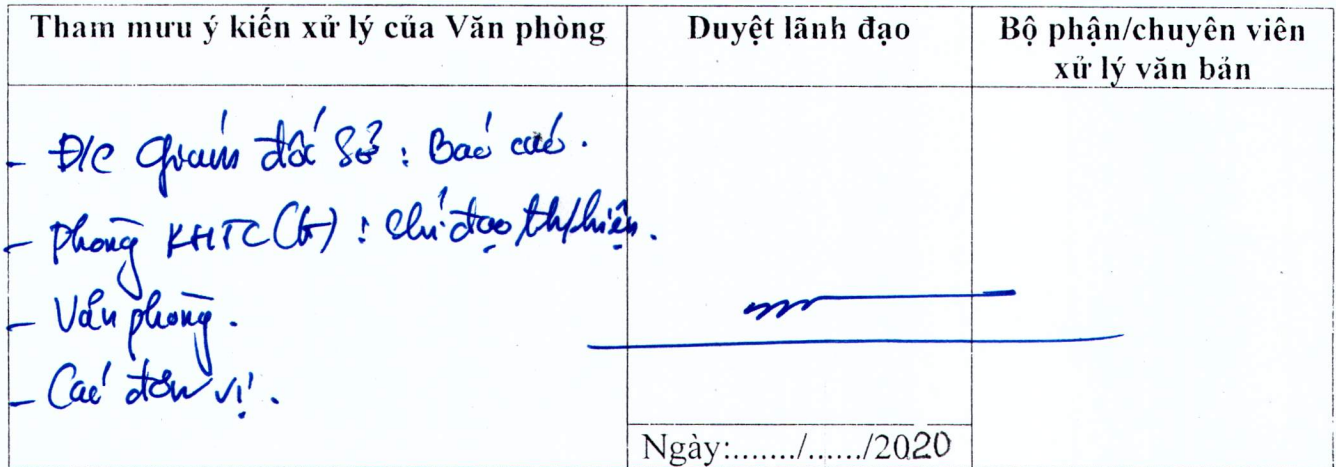 Tham mưu ý kiến xử lý của Văn phòng
Duyệt lãnh đạo
Bộ phận/chuyên viên
xử lý văn bản
- Đ/c Giám đốc Sở: Báo cáo.
- Phòng KHTC: chỉ đạo th/hiện.
- Văn phòng.
- Các đơn vị.
Ngày:....../....../2020